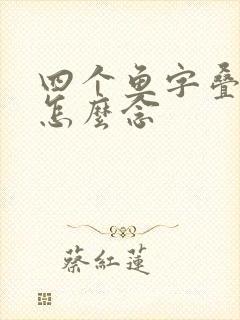 四个鱼字叠
怎麼念
蔡紅蓮